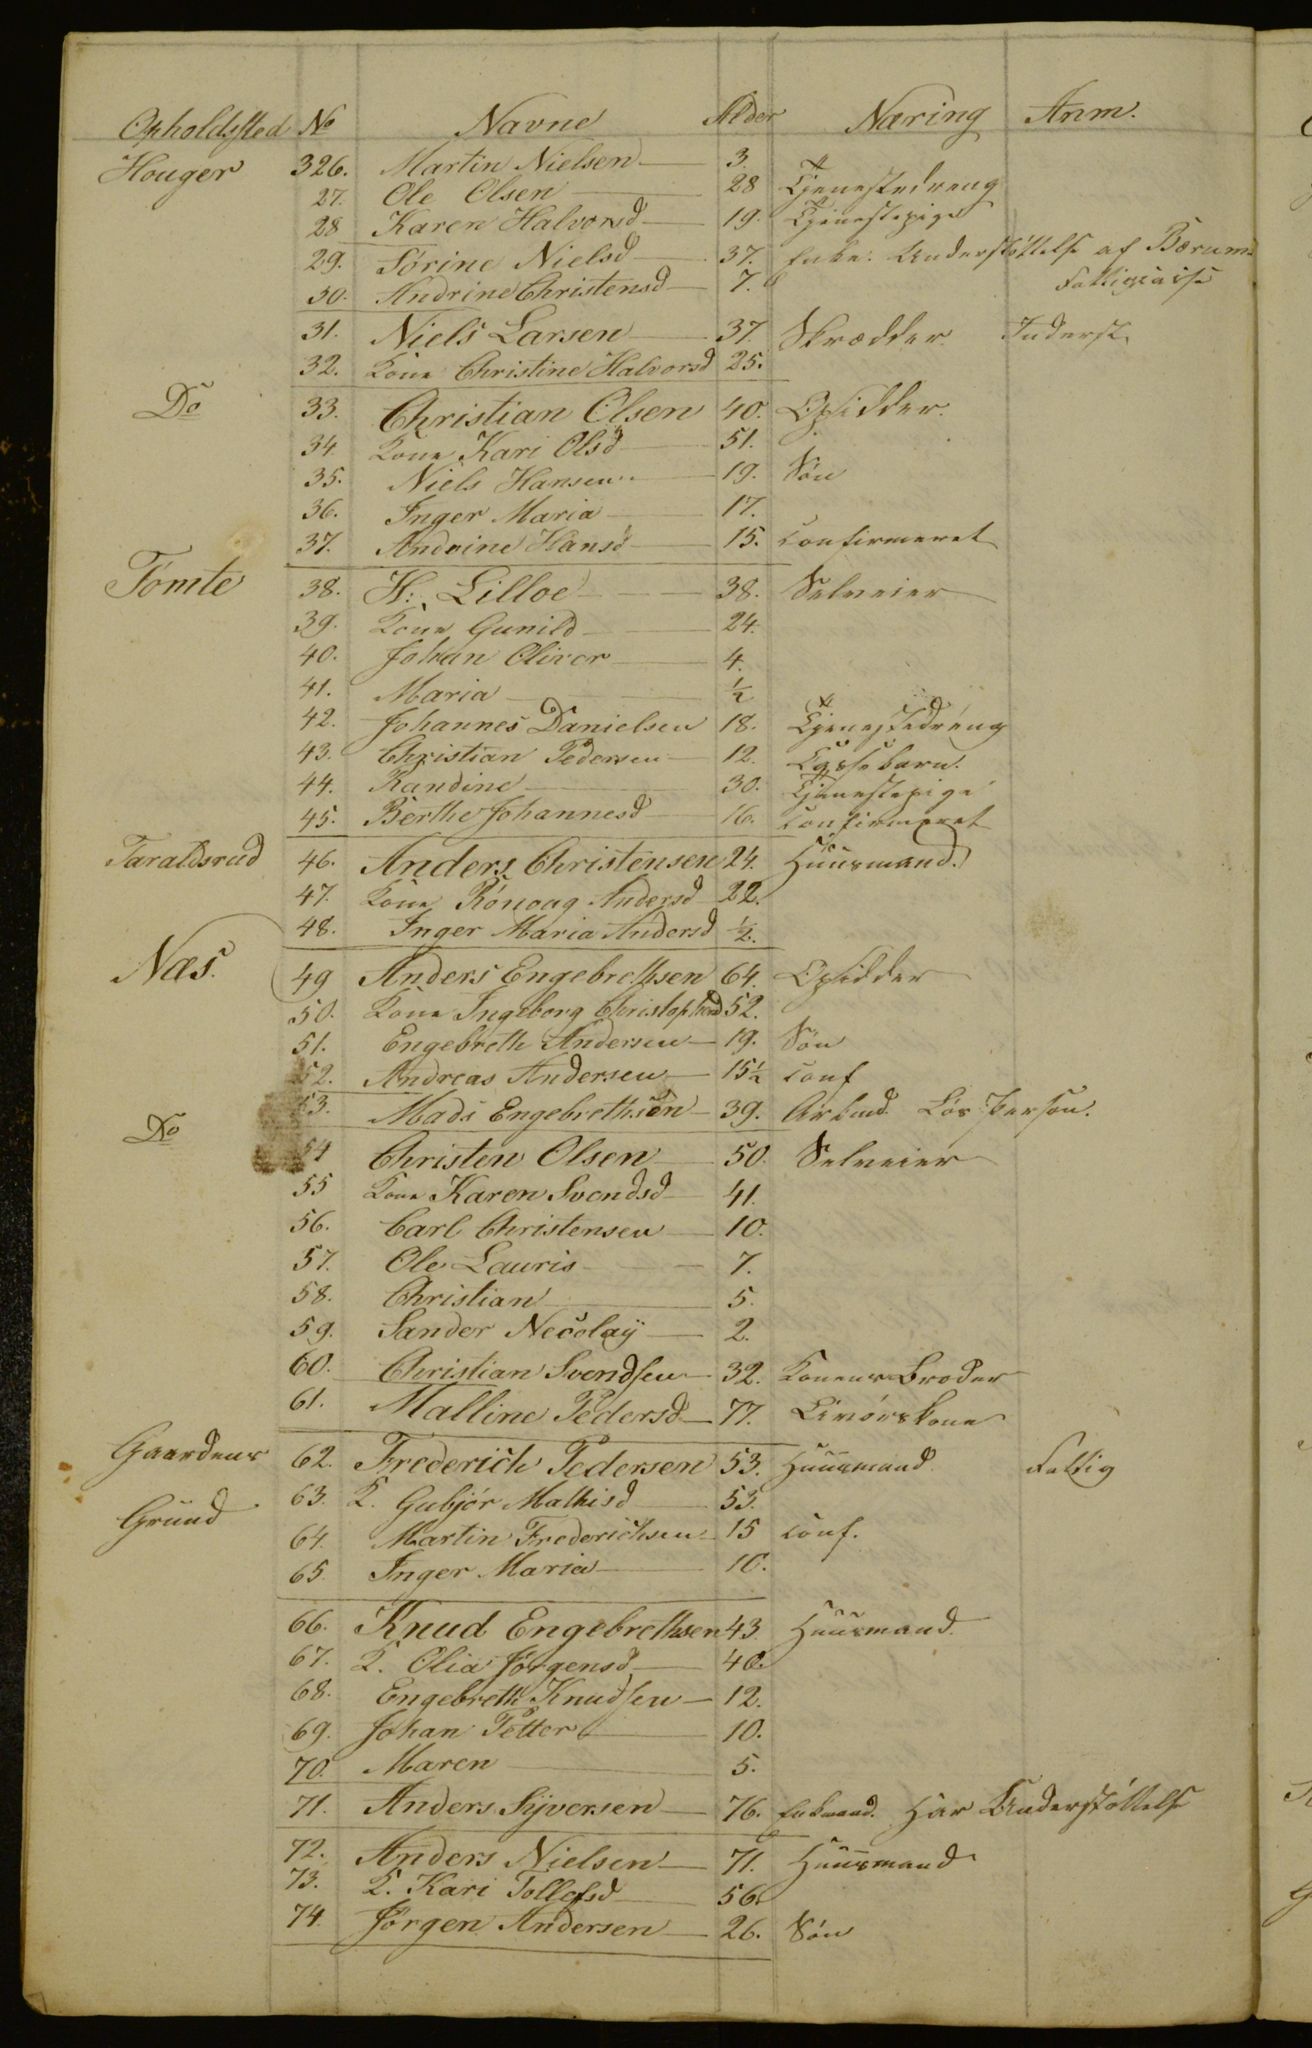 Opholdssted No Navne Alder Næring Anm.
Houger 326. Martin Nielsen 3.
27. Ole Olsen 28 Tjenestedreng
28 Karen Halvorsd 19. Tjenestepige
29. Sørine Nielsd 37. Enke. Understøttelse af Bærums
30. Andrine Christensd 7. Fattigcasse
31. Niels Larsen 37. Skrædder. Inderst
32. Kone Christine Halvorsd 25.
Do 33. Christian Olsen 40. Opsidder.
34. Kone Kari Olsd 51.
35. Niels Hansen 19. Søn
36. Inger Maria 17.
37. Andrine Hansd 15. confirmeret
Tømte 38. H: Lilloe 38. Selveier
39. Kone Gunild 24.
40. Johan Oliver 4.
41. Maria ½
42. Johannes Danielsen 18. Tjenestedreng
43. Christian Pedersen 12.
44. Randine 30. Tjenestepige
45. Berthe Johannesd 16. confirmeret
Taraldsrud 46. Anders Christensen 24. Huusmand.
47. Kone Rønoug Andersd 22.
48. Inger Maria Andersd ½.
Næs. 49 Anders Engebrethsen 64. Opsidder
50. Kone Ingeborg Christophersd 52.
51. Engebreth Andersen 19. Søn
52. Andreas Andersen 15½ conf
53. Mads Engebrethsen 39. Arbmd. Løs Person.
Do 54 Christen Olsen 50. Selveier
55 Kone Karen Svendsd 41.
56. Carl Christensen 10.
57. Ole Lauris 7.
58. Christian 5.
59. Sander Necolaÿ 2.
60. Christian Svendsen 32. Konens Broder
61. Malline Pedersd 77. Livørskone
Gaardens 62. Frederich Pedersen 53. Huusmand. Fattig
Grund 63. K. Gubjør Mathisd 55.
64. Martin Frederichsen 15 conf.
65. Inger Maria 10.
66. Knud Engebrethsen 43 Huusmand.
67. K. Olia Jørgensd 40.
68. Engebreth Knudsen 12.
69. Johan Petter 10.
70. Maren 5.
71. Anders Syversen 76. Enkmand. Har Understøttelse
72. Anders Nielsen 71. Huusmand
73. K. Kari Tollefsd 56.
74. Jørgen Andersen 26. Søn